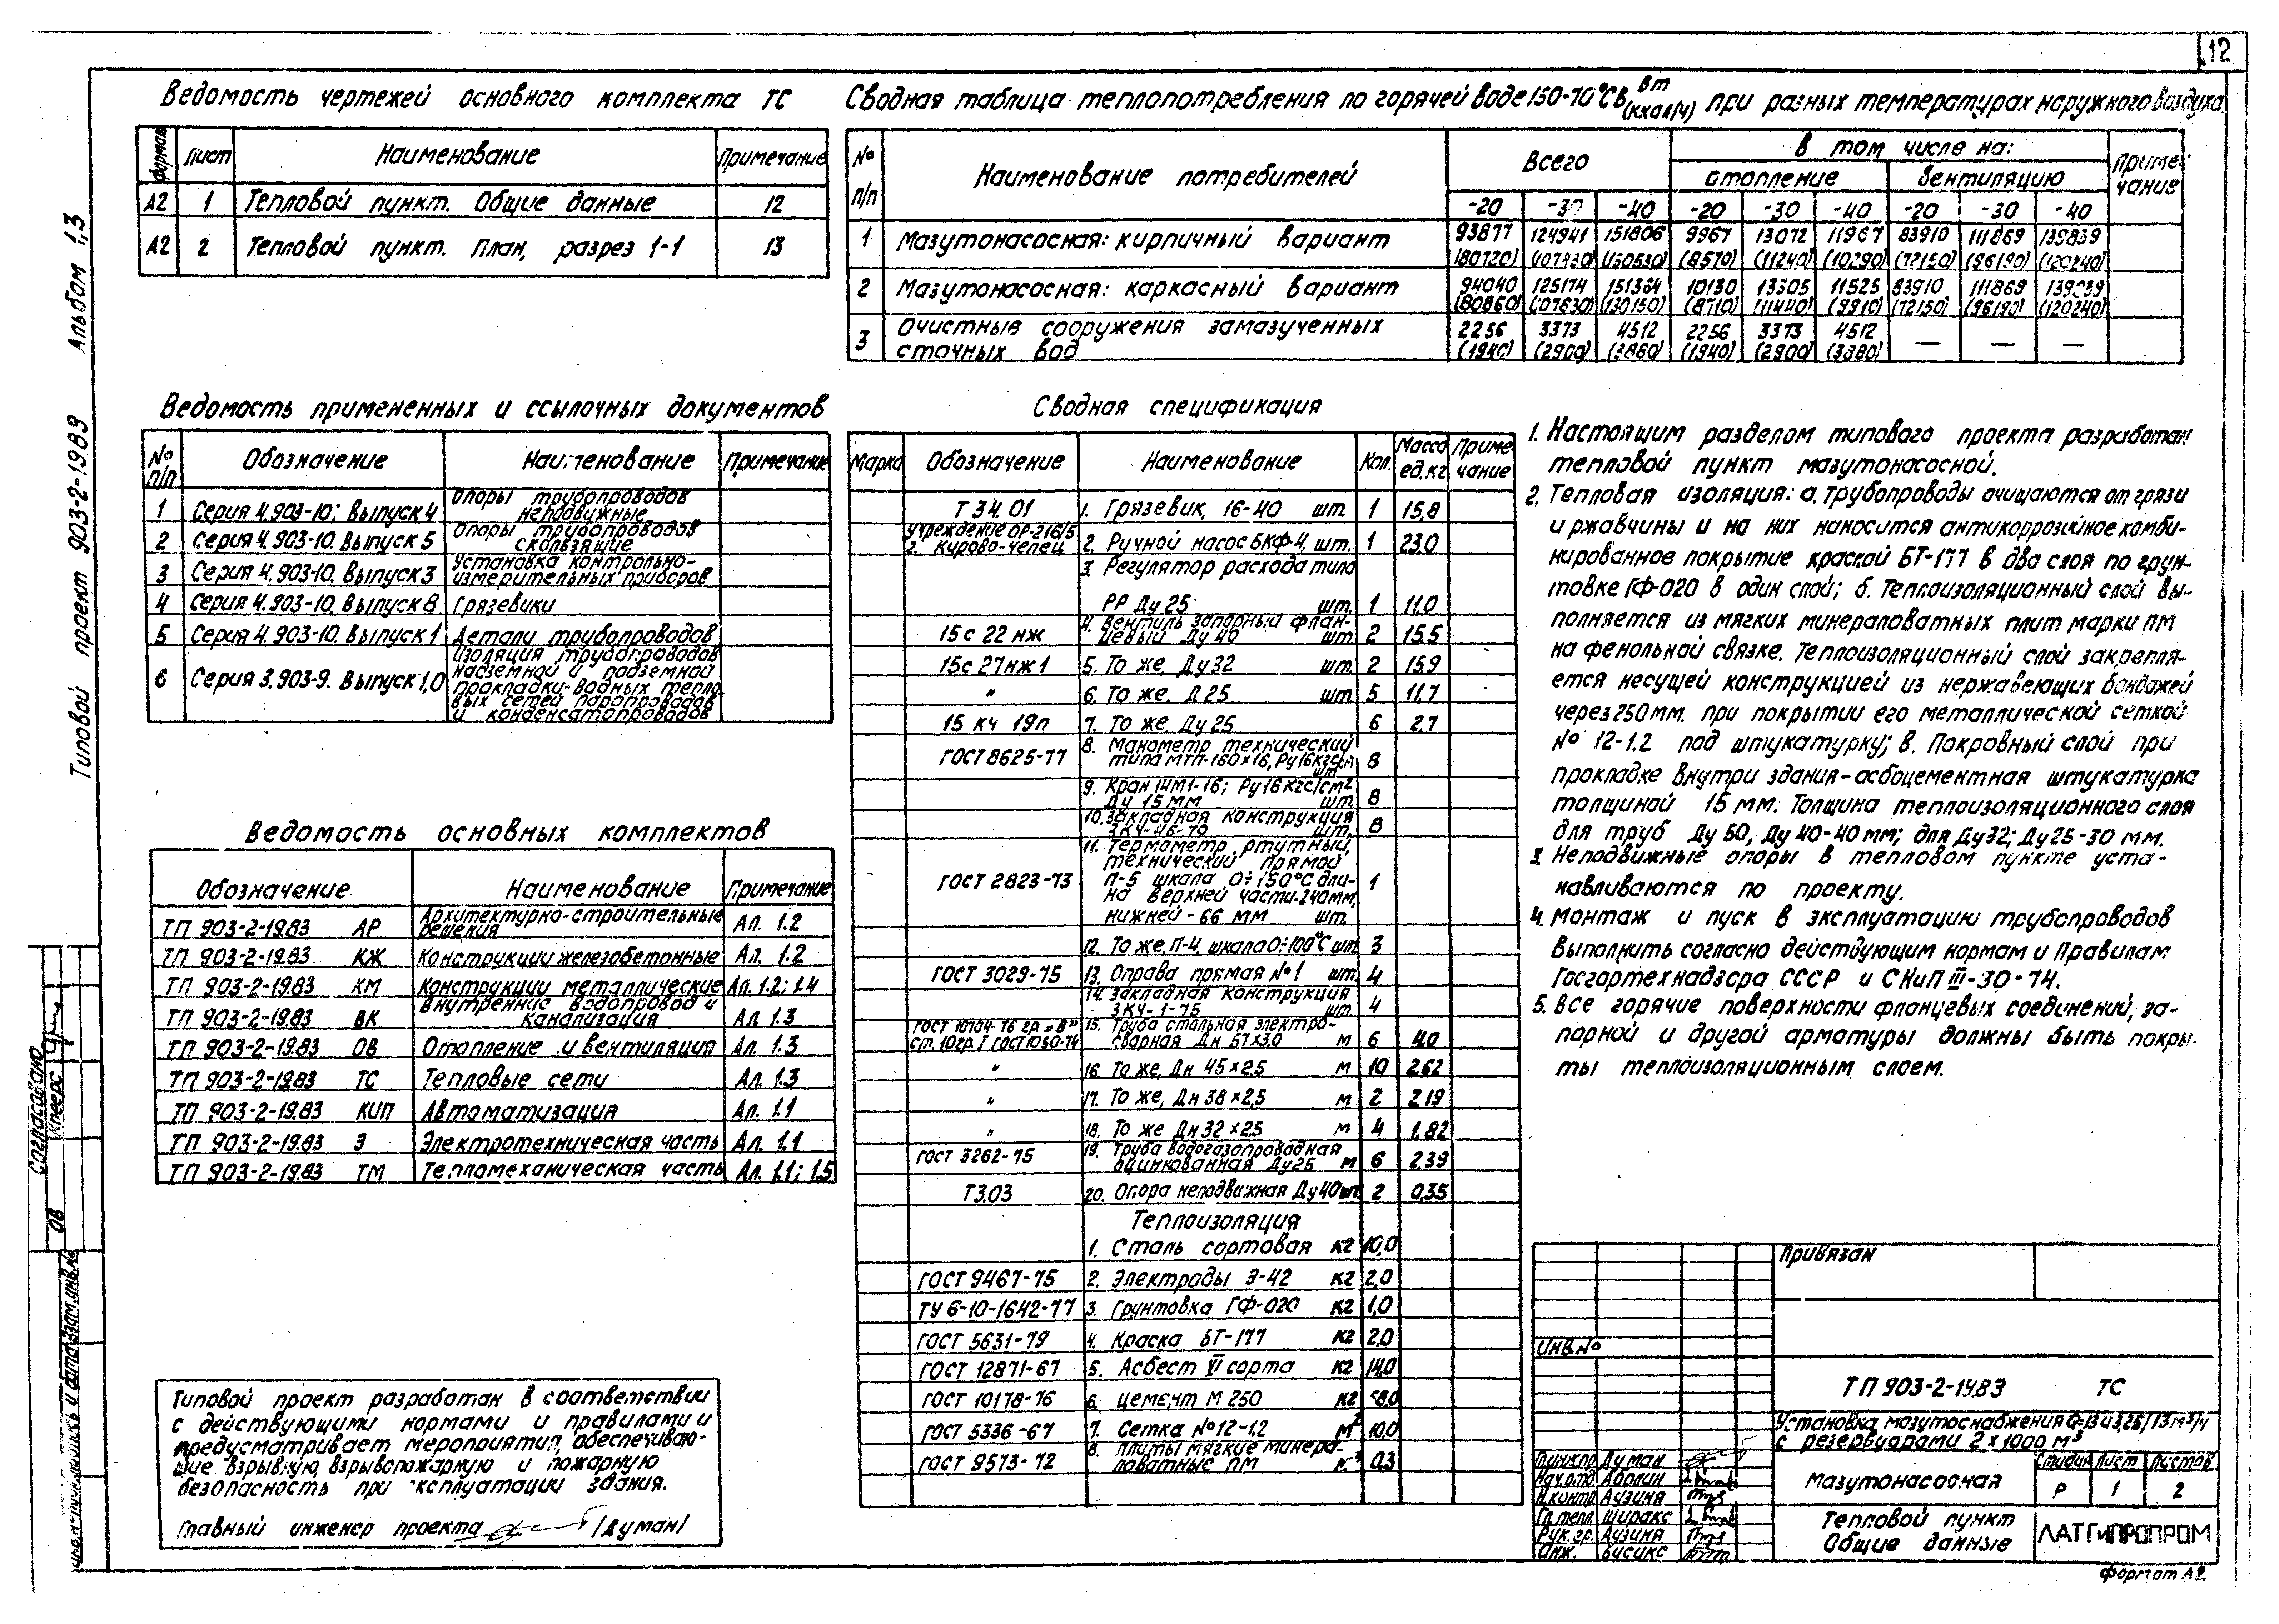 12
Типовой проект 903-2-1983 Альбом 1,3
Ведомость чертежей основного комплекта ТС
Формат Лист Наименование Примечание
А2 1 Тепловой пункт. Общие данные 12
А2 2 Тепловой пункт. План, разрез 1-1 13
Сводная таблица теплопотребления по горячей воде 150-70°С в Вт (ккал/ч) при разных температурах наружного воздуха
№ п/п Наименование потребителей Всего В том числе на: Приме-
отопление вентиляцию чание
-20 -30 -40 -20 -30 -40 -20 -30 -40
1 Мазутонасосная: кирпичный вариант 93877 124941 151806 9967 13072 11967 83910 111869 139839
(80720) (107430) (130530) (8570) (11240) (10290) (72150) (96190) (120240)
2 Мазутонасосная: каркасный вариант 94040 125174 151364 10130 13305 11525 83910 111869 139839
(80860) (107630) (130150) (8710) (11440) (9910) (72150) (96190) (120240)
3 Очистные сооружения замазученных 2256 3373 4512 2256 3373 4512 — — —
сточных вод (1940) (2900) (3860) (1940) (2900) (3380)
Ведомость примененных и ссылочных документов
№ п/п Обозначение Наименование Примечание
1 Серия 4.903-10; Выпуск 4 Опоры трубопроводов
неподвижные
2 Серия 4.903-10. Выпуск 5 Опоры трубопроводов
скользящие
3 Серия 4.903-10. Выпуск 3 Установка контрольно-
измерительных приборов
4 Серия 4.903-10. Выпуск 8 Грязевики
5 Серия 4.903-10. Выпуск 1 Детали трубопроводов
6 Серия 3.903-9. Выпуск 1,0 Изоляция трубопроводов
надземной и подземной
прокладки водных тепло-
вых сетей паропроводов
и конденсатопроводов
Ведомость основных комплектов
Обозначение Наименование Примечание
ТП 903-2-19.83 АР Архитектурно-строительные
решения Ал. 1.2
ТП 903-2-19.83 КЖ Конструкции железобетонные Ал. 1.2
ТП 903-2-19.83 КМ Конструкции металлические Ал. 1.2; 1.4
ТП 903-2-19.83 ВК Внутренние водопровод и
канализация Ал. 1.3
ТП 903-2-19.83 ОВ Отопление и вентиляция Ал. 1.3
ТП 903-2-19.83 ТС Тепловые сети Ал. 1.3
ТП 903-2-19.83 КИП Автоматизация Ал. 1.1
ТП 903-2-19.83 Э Электротехническая часть Ал. 1.1
ТП 903-2-19.83 ТМ Тепломеханическая часть Ал. 1.1; 1.5
Типовой проект разработан в соответствии
с действующими нормами и правилами и
предусматривает мероприятия, обеспечиваю-
щие взрывную, взрывопожарную и пожарную
безопасность при эксплуатации здания.
Главный инженер проекта /Думан/
Сводная спецификация
Марка Обозначение Наименование Кол. Масса ед.кг Приме-чание
Т 34.01 1. Грязевик, 16-40 шт. 1 15,8
Учреждение ОР-216/5
г. Кирово-Чепец 2. Ручной насос БКФ-4, шт. 1 23.0
3. Регулятор расхода типа
РР Ду 25 шт. 1 11.0
15с 22 нж 4. Вентиль запорный флан-
цевый Ду 40 шт. 2 15.5
15с 27нж1 5. То же, Ду 32 шт. 2 15.9
" 6. То же, Д 25 шт. 5 11.7
15 кч 19п 7. То же, Ду 25 6 2.7
ГОСТ 8625-77 8. Манометр технический
типа МТП-160×16, Ру16кгс/см
шт 8
9. Кран 14М1-16; Ру16кгс/см²
Ду 15 мм шт. 8
10. Закладная конструкция
ЗК4-46-70 шт. 8
ГОСТ 2823-73 11. Термометр ртутный
технический прямой
П-5 шкала 0÷150°С дли-
на верхней части-240мм,
нижней-66 мм шт. 1
12. То же, П-4, шкала 0÷100°С шт. 3
ГОСТ 3029-75 13. Оправа прямая №1 шт. 4
14. Закладная конструкция
ЗК4-1-75 шт. 4
ГОСТ 10704-76 гр. „В"
Ст. 10гр. I ГОСТ1050-74 15. Труба стальная электро-
сварная Дн 57×3.0 м 6 4.0
" 16. То же, Дн 45×2,5 м 10 2.62
" 17. То же, Дн 38×2,5 м 2 2.19
" 18. То же Дн 32×2.5 м 4 1.82
ГОСТ 3262-75 19. Труба водогазопроводная
оцинкованная Ду25 м 6 2.39
Т3.03 20. Опора неподвижная Ду40 шт. 2 0,35
Теплоизоляция
1. Сталь сортовая кг 10,0
ГОСТ 9467-75 2. Электроды Э-42 кг 2.0
ТУ 6-10-1642-77 3. Грунтовка ГФ-020 кг 1,0
ГОСТ 5631-79 4. Краска БТ-177 кг 2.0
ГОСТ 12871-67 5. Асбест VI сорта кг 14,0
ГОСТ 10178-76 6. Цемент М 250 кг
ГОСТ 5336-67 7. Сетка №12-1.2 м² 10,0
ГОСТ 9573-72 8. Плиты мягкие минера-
ловатные ПМ м³ 0,3
1. Настоящим разделом типового проекта разработан
тепловой пункт мазутонасосной.
2. Тепловая изоляция: а. трубопроводы очищаются от грязи
и ржавчины и на них наносится антикоррозийное комби-
нированное покрытие краской БТ-177 в два слоя по грун-
товке ГФ-020 в один слой; б. Теплоизоляционный слой вы-
полняется из мягких минераловатных плит марки ПМ
на фенольной связке. Теплоизоляционный слой закрепля-
ется несущей конструкцией из нержавеющих бандажей
через 250мм. при покрытии его металлической сеткой
№ 12-1.2 под штукатурку; в. Покровный слой при
прокладке внутри здания-асбоцементная штукатурка
толщиной 15 мм. Толщина теплоизоляционного слоя
для труб Ду 50, Ду 40-40 мм; для Ду32; Ду25-30 мм.
3. Неподвижные опоры в тепловом пункте уста-
навливаются по проекту.
4. Монтаж и пуск в эксплуатацию трубопроводов
выполнить согласно действующим нормам и Правилам
Госгортехнадзора СССР и СНиП III-30-74.
5. Все горячие поверхности фланцевых соединений, за-
порной и другой арматуры должны быть покры-
ты теплоизоляционным слоем.
Привязан
Инв.№
ТП 903-2-19.83 ТС
Установка мазутоснабжения Q=13 и 3,25/13 м³/ч
с резервуарами 2×1000 м³
Гл.инж.пр Думан
Нач.отд Аболин
Н.контр Аузиня
Гл.тепл. Ширакс
Рук. гр. Аузиня
Инж. Бусикс
Мазутонасосная
Стадия Лист Листов
Р 1 2
Тепловой пункт
Общие данные
ЛАТГИПРОПРОМ
Формат А2
Согласовано
ОВ Клеерс